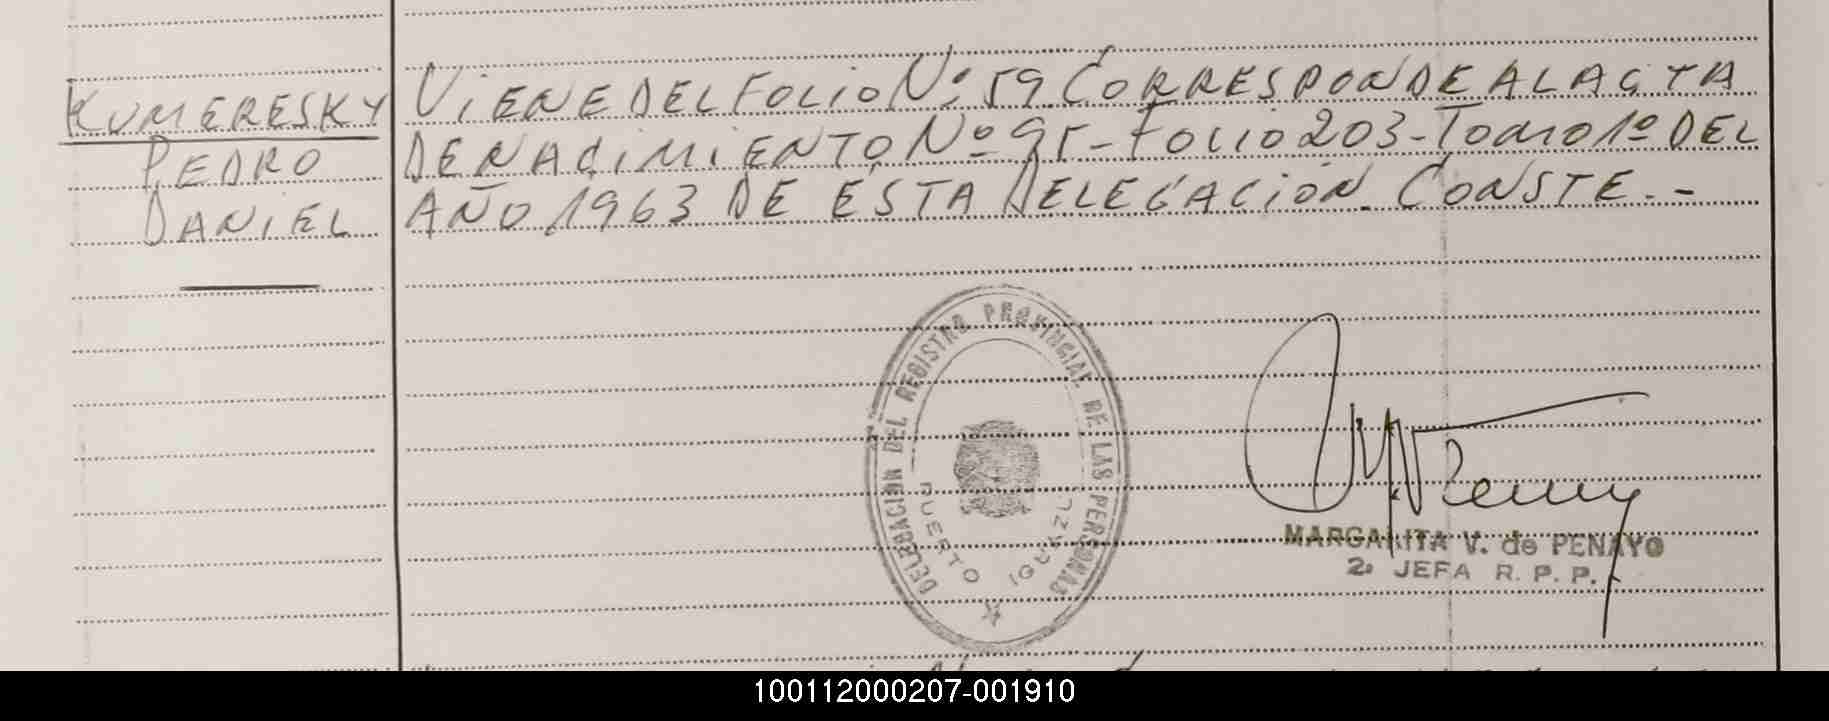 KUMERESKY
PEDRO
DANIEL
VIENE DEL FOLIO Nº 59. CORRESPONDE AL ACTA
DE NACIMIENTO Nº 95 - FOLIO 203 - TOMO 1º DEL
AÑO 1963 DE ÉSTA DELEGACIÓN. CONSTE.-
DELEGACION DEL REGISTRO PROVINCIAL DE LAS PERSONAS
PUERTO IGUAZU
MARGARITA V. de PENAYO
2º JEFA R. P. P.
100112000207-001910